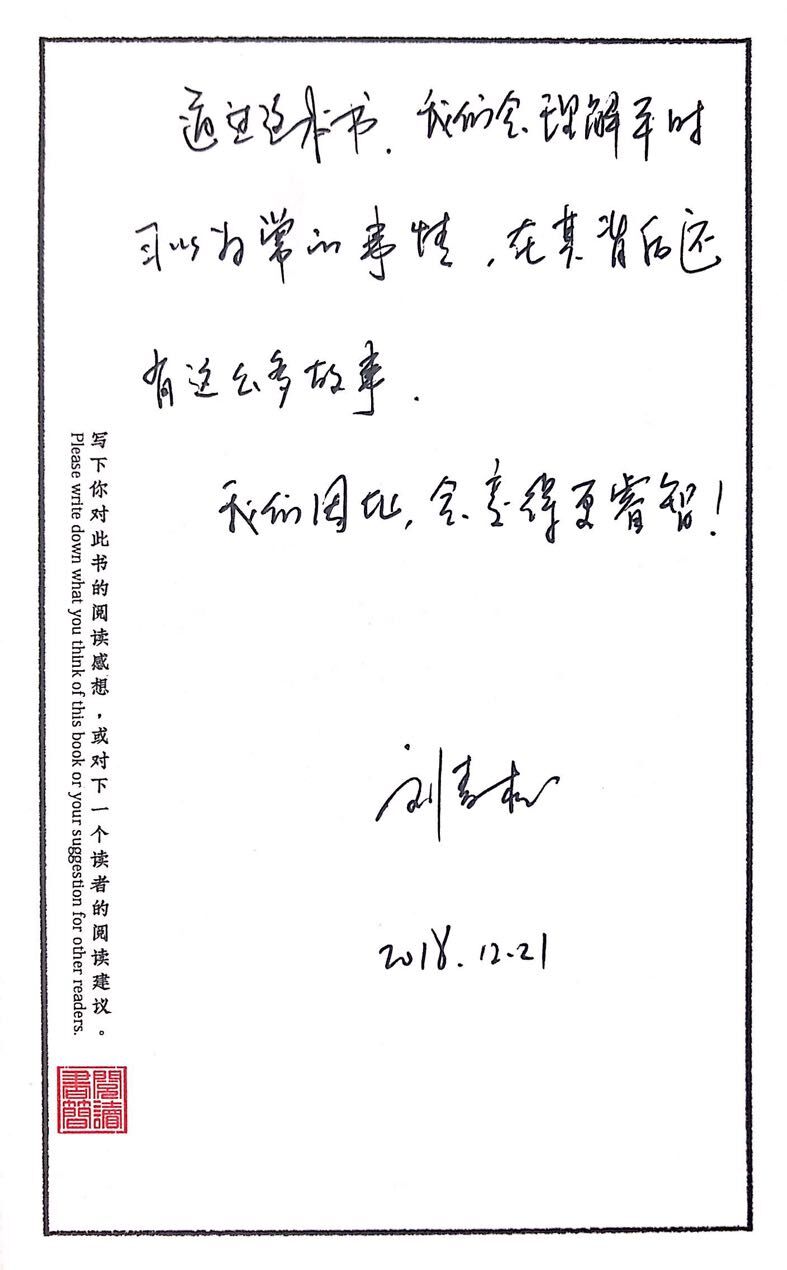 通过这本书，我们会理解平时
习以为常的事情，在其背后还
有这么多故事．
我们因此，会变得更睿智！
刘青松
2018.12.21
写下你对此书的阅读感想，或对下一个读者的阅读建议。
Please write down what you think of this book or your suggestion for other readers.
閱讀
書簡